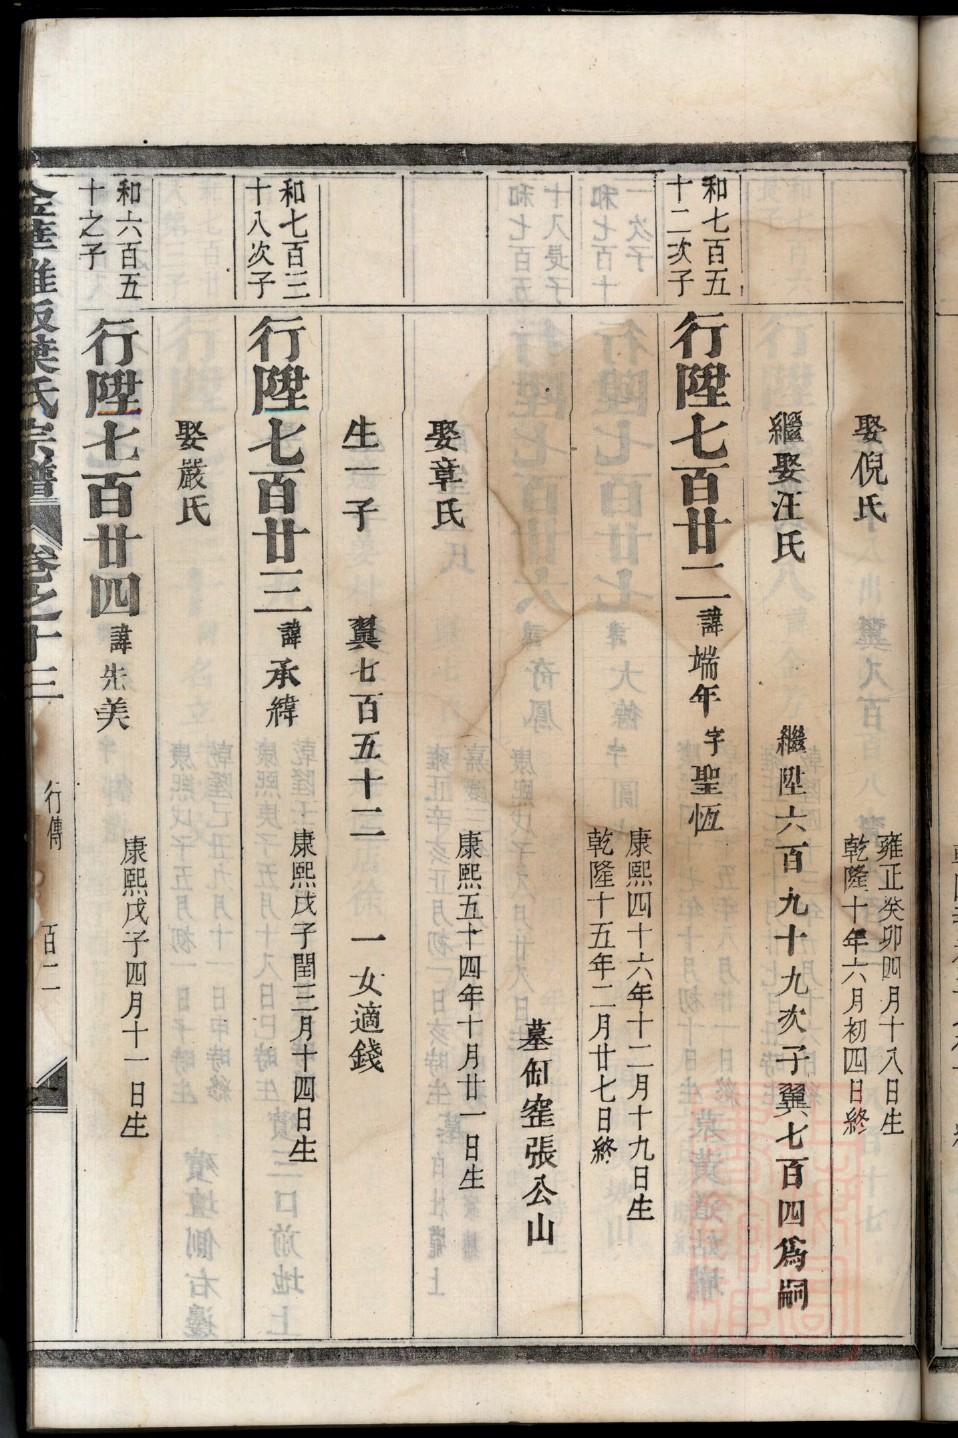 娶倪氏
雍正癸卯四月十八日生
乾隆十年六月初四日終
繼娶汪氏
繼陞六百九十九次子翼七百四爲嗣
和七百五
十二次子
行陞七百廿二
諱端年
字聖恆
康熙四十六年十二月十九日生
乾隆十五年二月廿七日終
墓缸窰張公山
娶章氏
康熙五十四年十月廿一日生
生一子
翼七百五十二
一女適錢
和七百三
十八次子
行陞七百廿三
諱承緯
康熙戊子閏三月十四日生
娶嚴氏
和六百五
十之子
行陞七百廿四
諱先美
康熙戊子四月十一日生
葉氏宗譜
卷之十三
行傳
百二